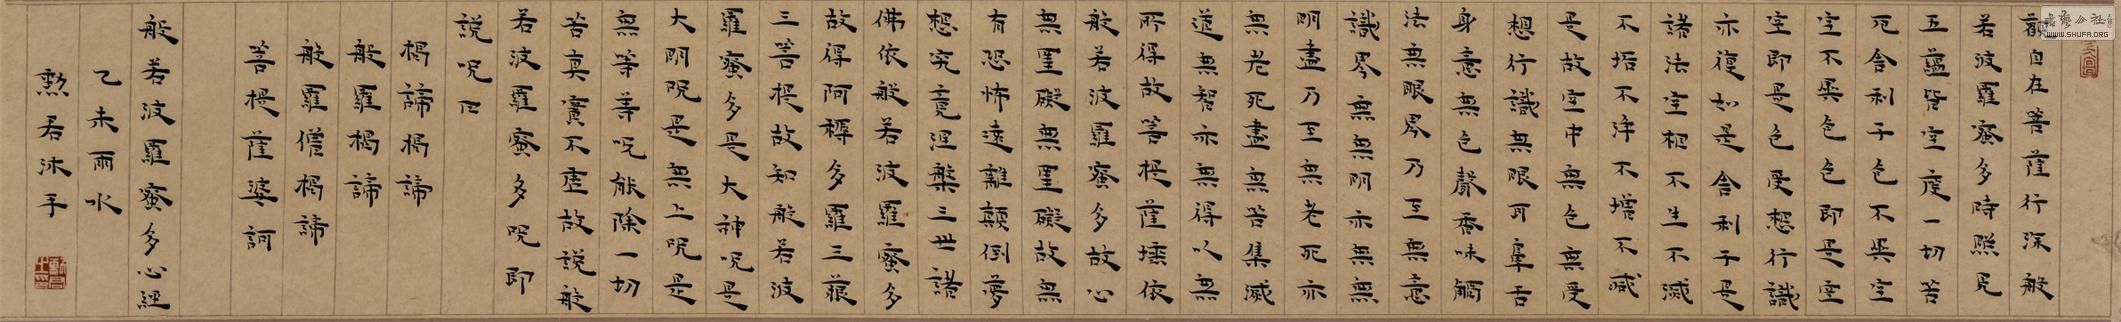 觀自在菩薩行深般
若波羅蜜多時照見
五蘊皆空度一切苦
厄舍利子色不異空
空不異色色即是空
空即是色受想行識
亦復如是舍利子是
諸法空相不生不滅
不垢不淨不增不減
是故空中無色無受
想行識無眼耳鼻舌
身意無色聲香味觸
法無眼界乃至無意
識界無無明亦無無
明盡乃至無老死亦
無老死盡無苦集滅
道無智亦無得以無
所得故菩提薩埵依
般若波羅蜜多故心
無罣礙無罣礙故無
有恐怖遠離顛倒夢
想究竟涅槃三世諸
佛依般若波羅蜜多
故得阿耨多羅三藐
三菩提故知般若波
羅蜜多是大神呪是
大明呪是無上呪是
無等等呪能除一切
苦真實不虛故說般
若波羅蜜多呪即
說呪曰
揭諦揭諦
般羅揭諦
般羅僧揭諦
菩提薩婆訶
般若波羅蜜多心經
乙未雨水
君沐手
WWW.SHUFA.ORG